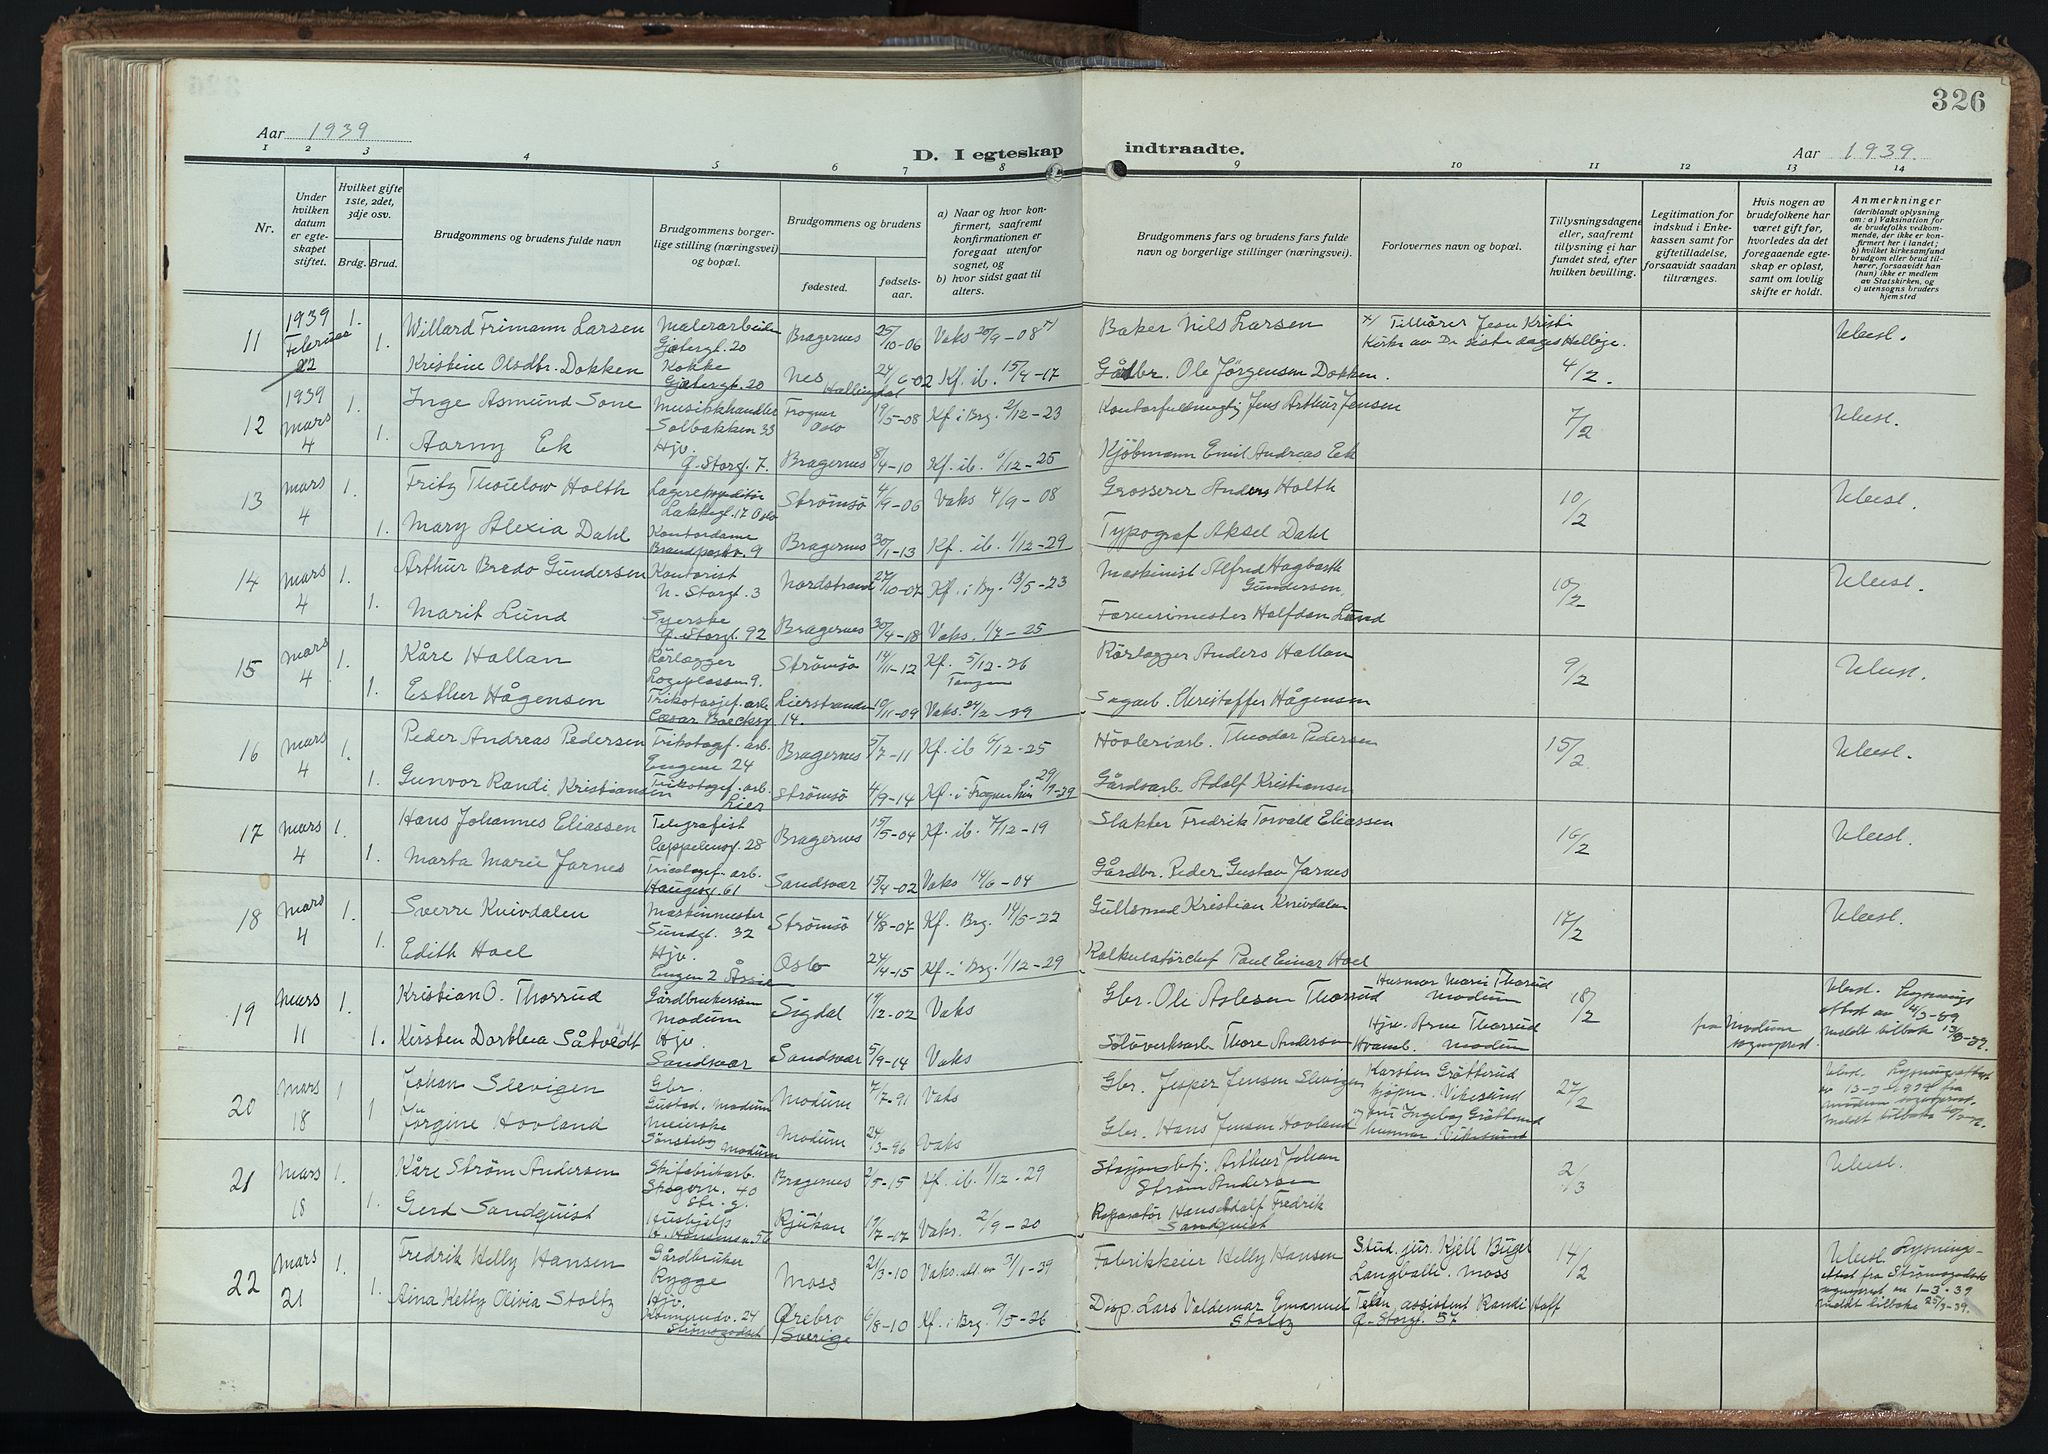 326
Aar 1939
D. I egteskap
indtraadte.
Aar 1939.
1 2 3 4 5 6 7 8 9 10 11 12 13 14
Nr.
Under hvilken datum er egteskapet stiftet.
Hvilket gifte 1ste, 2det, 3dje osv.
Brdg. Brud.
Brudgommens og brudens fulde navn
Brudgommens borgerlige stilling (næringsvei) og bopæl.
Brudgommens og brudens
fødested.
fødselsaar.
a) Naar og hvor konfirmert, saafremt konfirmationen er foregaat utenfor sognet, og
b) hvor sidst gaat til alters.
Brudgommens fars og brudens fars fulde navn og borgerlige stillinger (næringsvei).
Forlovernes navn og bopæl.
Tillysningsdagene eller, saafremt tillysning ei har fundet sted, efter hvilken bevilling.
Legitimation for indskud i Enkekassen samt for giftetilladelse, forsaavidt saadan tiltrænges.
Hvis nogen av brudefolkene har været gift før, hvorledes da det foregaaende egteskap er opløst, samt om lovlig skifte er holdt.
Anmerkninger
(deriblandt oplysning om: a) Vaksination for de brudefolks vedkommende, der ikke er konfirmert her i landet; b) hvilket kirkesamfund brudgom eller brud tilhører, forsaavidt han (hun) ikke er medlem av Statskirken, og c) utensogns bruders hjemsted
11 1939 Februar 22 1. Willard Frimann Larsen Malerarbeider Gjetergt. 20 Bragernes 25/10-06 Vaks 20/9-08 x) Baker Nils Larsen x) Tilhører Jesu Kristi Kirke av De siste dages Hellige. Vbesl.
1. Kristine Olsdtr. Dokken Kokke Gjetergt. 20 Nes Hallingdal 24/6-02 Kf. ib. 15/4-17 Gårdbr. Ole Jørgensen Dokken. 4/2.
12 1939 Mars 4 1. Inge Asmund Sone Musikkhandler Solbakken 33 Frogner Oslo 19/5-08 Kf i Brg. 2/12-23 Kontorfullmegtig Jens Arthur Jensen 7/2 Vbesl.
1. Aarny Ek Hjv. Ø. Storgt. 7. Bragernes 8/4-10 Kf. ib. 6/12-25 Kjøbmann Emil Andreas Ek
13 Mars 4 1. Fritz Thoulow Holth Lakkegt. 17 Oslo Strømsø 4/9-06 Vaks 4/9-08 Grosserer Anders Holth 10/2 Vbesl.
1. Mary Alexia Dahl Kontordame Brandpostv. 9 Bragernes 30/1-13 Kf. ib. 1/12-29 Typograf Aksel Dahl
14 Mars 4 1. Arthur Bredo Gundersen Kontorist N. Storgt. 3 Nordstrand 27/10-07 Kf. i Brg. 13/5-23 Maskinist Alfred Hagbarth Gundersen, 10/2 Vbesl.
1. Marit Lund Syerske Ø. Storgt. 92 Bragernes 30/4-18 Vaks. 1/7-25 Farverimester Halfdan Lund
15 Mars 4 1. Kåre Hallan Rørlegger Logeplassen 9. Strømsø 14/11-12 Kf. 5/12-26 Tangen Rørlegger Anders Hallan 9/2 Vbesl.
1. Esther Hågensen Trikotasjef. arb. Cæsar Boecksgt 14. Lierstranden 10/11-09 Vaks. 24/2-39 Sagarb. Christoffer Hågensen
16 Mars 4 1. Peder Andreas Pedersen Trikotagef. arb. Engene 24 Bragernes 5/7-11 Kf. ib 6/12-25 Høvleriarb. Theodor Pedersen 15/2 Vbesl.
1. Gunvor Randi Kristiansen Trikotagef. arb. Lier Strømsø 4/9-14 Kf. i Frogner Lier 29/9-29 Gårdsarb. Adolf Kristiansen
17 Mars 4 1. Hans Johannes Eliassen Telegrafist Cappelensgt. 28 Bragernes 15/5-04 Kf. ib. 7/12-19 Slakter Fredrik Torvald Eliassen 16/2 Vbesl.
1. Marta Marie Jarnes Tricotagef. arb. Haugesgt. 61 Sandsvær 15/4-02 Vaks 14/6-04 Gårdbr. Peder Gustav Jarnes
18 Mars 4 1. Sverre Knivdalen Maskinmester Sundgt. 32 Strømsø 14/8-07 Kf. Brg. 14/5-22 Gullsmed Kristian Knivdalen 17/2 Vbesl.
1. Edith Hoel Hjv. Engen 2 Åssiden Oslo 24/4-15 Kf. i Brg. 1/12-29 Kalkulatørchef Paul Einar Hoel
19 Mars 11 1. Kristian O. Thorrud Gårdbrukersøn Modum Sigdal 19/12-02 Vaks Gbr. Ole Aslesen Thorrud Husmor Marie Thorud Modum 18/2 Vbesl. Lysningsattest av 4/3-39
1. Kirsten Dorthea Såtvedt Hjv. Sandsvær Sandsvær 5/9-14 Vaks Sølvverksarb. Thore Andersen Hjv. Arne Thorrud Hvamb. Modum fra Modum sogneprest. meldt tilbake 13/3-39.
20 Mars 18 1 Johan Slevigen Gbr. Gustad. Modum Modum 7/7-91 Vaks Gbr. Jesper Jensen Slevigen Karsten Grøtterud kjøpm. Vikesund 27/2 Vbesl. Lysningsattest
1 Jørgine Hovland Meierske Modum Modum 24/3-96 Vaks Gbr. Hans Jensen Hovland og fru Ingeborg Grøtterud husmor. Vikesund Modum sogneprest. meldt tilbake
21 Mars 18 1. Kåre Strøm Andersen Skifabrikarb. Skogerv. 40 Bragernes 2/5-15 Kf. ib. 1/12-29 Stasjonsbetj. Arthur Johan Strøm Andersen 2/3 Vbesl.
1. Gerd Sandquist Hushjelp H. Hansensv. 56 Rjukan 19/7-17 Vaks. 2/9-20 Reparatør Hans Adolf Fredrik Sandquist
22 Mars 21 1. Fredrik Helly Hansen Gårdbruker Rygge Moss 21/3-10 Vaks. att av 3/1-39 Fabrikkeier Helly Hansen Stud. jur. Kjell Büget Langballe. Moss 14/2 Vbesl. Lysningsattest fra Strømsgodset sogneprest av 1-3-39 meldt tilbake 25/3-39.
1. Aina Ketty Olivia Stoltz Hjv. Konnerudv. 24 Strømsgodset Ørebro Sverige 6/8-10 Kf. i Brg. 9/5-26 Disp. Lars Valdemar Emanuel Stoltz Telen. assistent Randi Hoff Ø. Storgt. 57